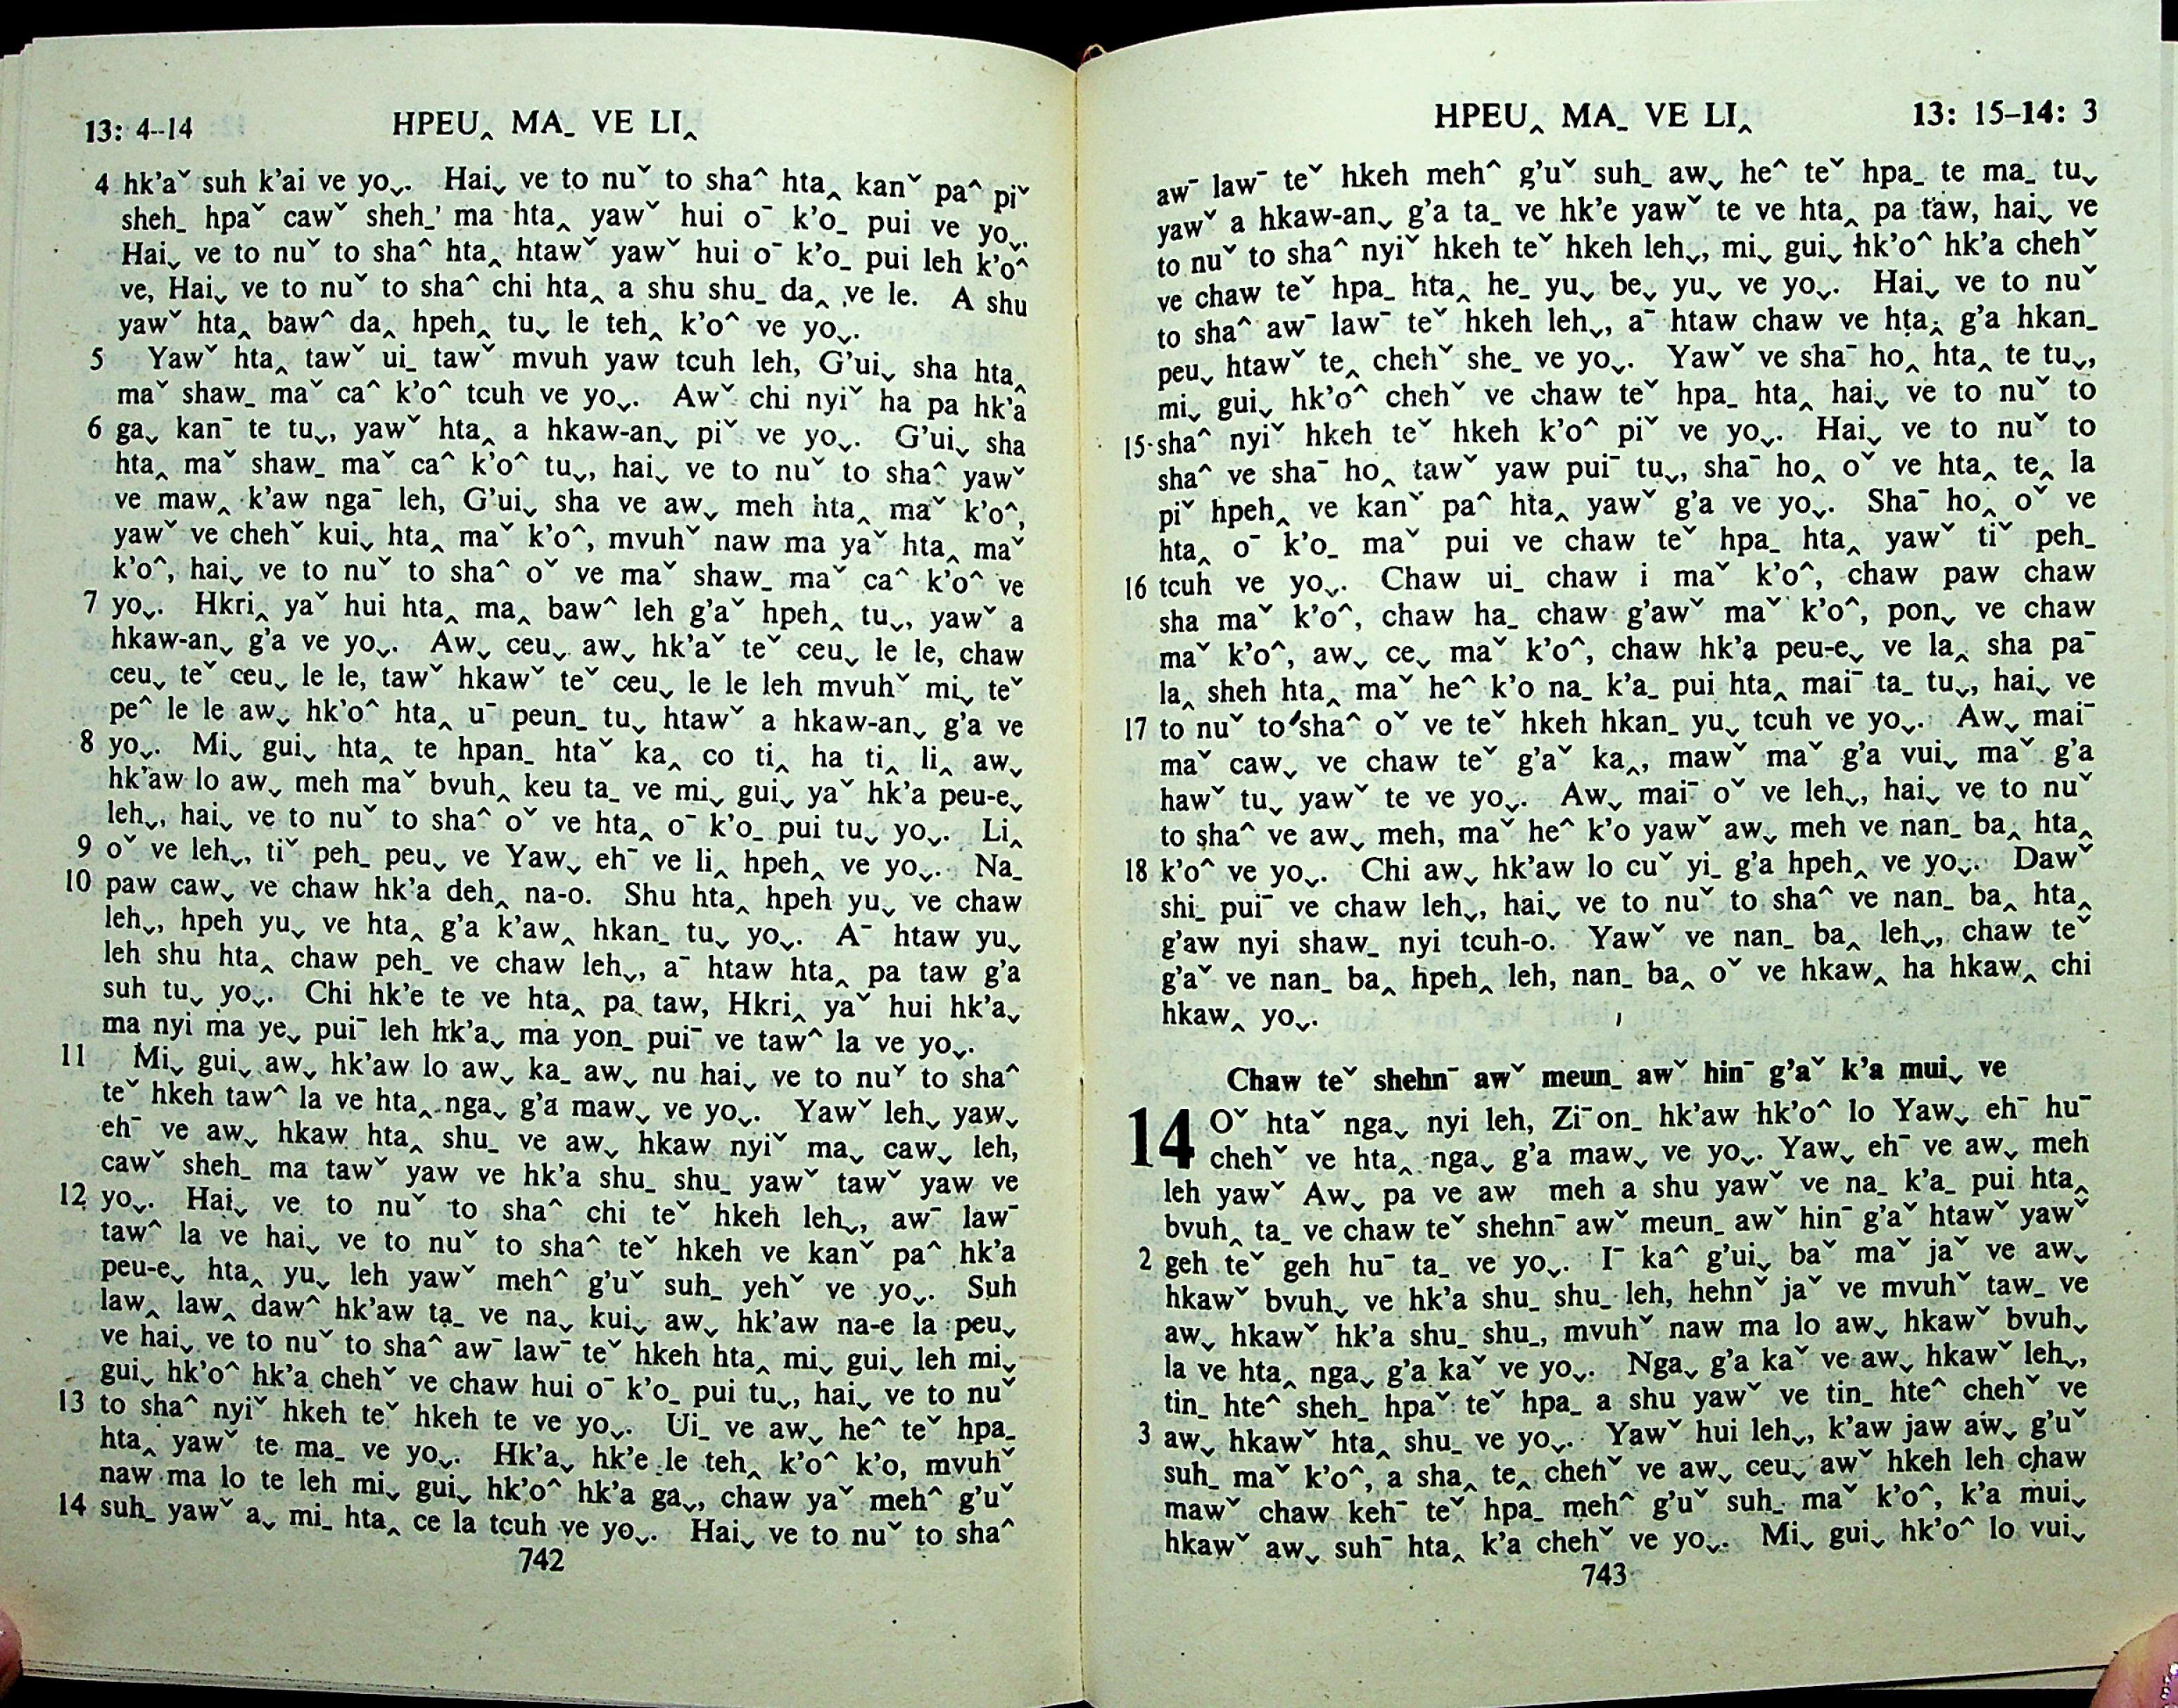 13: 4-14 HPEU‸ MA˗ VE LI‸
4 hk'aˇ suh k'ai ve yoˬ. Haiˬ ve to nuˇ to sha^ hta‸ kanˇ pa^ piˇ
sheh˗ hpaˇ cawˇ sheh˗ ma hta‸ yawˇ hui oˉ k'o˗ pui ve yoˬ.
Haiˬ ve to nuˇ to sha^ hta‸ htawˇ yawˇ hui oˉ k'o˗ pui leh k'o^
ve, Haiˬ ve to nuˇ to sha^ chi hta‸ a shu shu˗ da‸ ve le. A shu
yawˇ hta‸ baw^ da‸ hpeh‸ tuˬ le teh‸ k'o^ ve yoˬ.
5 Yawˇ hta‸ tawˇ ui˗ tawˇ mvuh yaw tcuh leh, G'uiˬ sha hta‸
maˇ shaw˗ maˇ ca^ k'o^ tcuh ve yoˬ. Awˇ chi nyiˇ ha pa hk'a
6 gaˬ kanˉ te tuˬ, yawˇ hta‸ a hkaw-anˬ piˇ ve yoˬ. G'uiˬ sha
hta‸ maˇ shaw˗ maˇ ca^ k'o^ tuˬ, haiˬ ve to nuˇ to sha^ yawˇ
ve maw‸ k'aw ngaˉ leh, G'uiˬ sha ve awˬ meh hta‸ maˇ k'o^,
yawˇ ve chehˇ kuiˬ hta‸ maˇ k'o^, mvuhˇ naw ma yaˇ hta‸ maˇ
k'o^, haiˬ ve to nuˇ to sha^ oˇ ve maˇ shaw˗ maˇ ca^ k'o^ ve
7 yoˬ. Hkri‸ yaˇ hui hta‸ ma‸ baw^ leh g'aˇ hpeh‸ tuˬ, yawˇ a
hkaw-anˬ g'a ve yoˬ. Awˬ ceuˬ awˬ hk'aˇ teˇ ceuˬ le le, chaw
ceuˬ teˇ ceuˬ le le, tawˇ hkawˇ teˇ ceuˬ le le leh mvuhˇ miˬ teˇ
pe^ le le awˬ hk'o^ hta‸ uˉ peun˗ tuˬ htawˇ a hkaw-anˬ g'a ve
8 yoˬ. Miˬ guiˬ hta‸ te hpan˗ htaˇ ka‸ co ti‸ ha ti‸ li‸ awˬ
hk'aw lo awˬ meh maˇ bvuh‸ keu ta˗ ve miˬ guiˬ yaˇ hk'a peu-eˬ
lehˬ, haiˬ ve to nuˇ to sha^ oˇ ve hta‸ oˉ k'o˗ pui tuˬ yoˬ. Li‸
9 oˇ ve lehˬ, tiˇ peh˗ peuˬ ve Yawˬ ehˉ ve li‸ hpeh‸ ve yoˬ. Na˗
10 paw cawˬ ve chaw hk'a deh‸ na-o. Shu hta‸ hpeh yuˬ ve chaw
lehˬ, hpeh yuˬ ve hta‸ g'a k'aw‸ hkan˗ tuˬ yoˬ. Aˉ htaw yuˬ
leh shu hta‸ chaw peh˗ ve chaw lehˬ, aˉ htaw hta‸ pa taw g'a
suh tuˬ yoˬ. Chi hk'e te ve hta‸ pa taw, Hkri‸ yaˇ hui hk'aˬ
ma nyi ma yeˬ puiˉ leh hk'aˬ ma yon˗ puiˉ ve taw^ la ve yoˬ.
11 Miˬ guiˬ awˬ hk'aw lo awˬ ka˗ awˬ nu haiˬ ve to nuˇ to sha^
teˇ hkeh taw^ la ve hta‸ ngaˬ g'a mawˬ ve yoˬ. Yawˇ lehˬ yawˬ
ehˉ ve awˬ hkaw hta‸ shu˗ ve awˬ hkaw nyiˇ maˬ cawˬ leh,
cawˇ sheh˗ ma tawˇ yaw ve hk'a shu˗ shu˗ yawˇ tawˇ yaw ve
12 yoˬ. Haiˬ ve to nuˇ to sha^ chi teˇ hkeh lehˬ, awˉ lawˉ
taw^ la ve haiˬ ve to nuˇ to sha^ teˇ hkeh ve kanˇ pa^ hk'a
peu-eˬ hta‸ yuˬ leh yawˇ meh^ g'uˇ suh˗ yehˇ ve yoˬ. Suh
law‸ law‸ daw^ hk'aw ta˗ ve naˬ kuiˬ awˬ hk'aw na-e la peuˬ
ve haiˬ ve to nuˇ to sha^ awˉ lawˉ teˇ hkeh hta‸ miˬ guiˬ leh miˬ
guiˬ hk'o^ hk'a chehˇ ve chaw hui oˉ k'o˗ pui tuˬ, haiˬ ve to nuˇ
13 to sha^ nyiˇ hkeh teˇ hkeh te ve yoˬ. Ui˗ ve awˬ he^ teˇ hpa˗
hta‸ yawˇ te ma˗ ve yoˬ. Hk'aˬ hk'e le teh‸ k'o^ k'o, mvuhˇ
naw ma lo te leh miˬ guiˬ hk'o^ hk'a gaˬ, chaw yaˇ meh^ g'uˇ
14 suh˗ yawˇ aˬ mi˗ hta‸ ce la tcuh ve yoˬ. Haiˬ ve to nuˇ to sha^
742
HPEU‸ MA˗ VE LI‸ 13: 15–14: 3
awˉ lawˉ teˇ hkeh meh^ g'uˇ suh˗ awˬ he^ teˇ hpa˗ te ma˗ tuˬ
yawˇ a hkaw-anˬ g'a ta˗ ve hk'e yawˇ te ve hta‸ pa taw, haiˬ ve
to nuˇ to sha^ nyiˇ hkeh teˇ hkeh lehˬ, miˬ guiˬ hk'o^ hk'a chehˇ
ve chaw teˇ hpa˗ hta‸ he˗ yuˬ beˬ yuˬ ve yoˬ. Haiˬ ve to nuˇ
to sha^ awˉ lawˉ teˇ hkeh lehˬ, aˉ htaw chaw ve hta‸ g'a hkan˗
peuˬ htawˇ te‸ chehˇ she˗ ve yoˬ. Yawˇ ve shaˉ ho‸ hta‸ te tuˬ,
miˬ guiˬ hk'o^ chehˇ ve chaw teˇ hpa˗ hta‸ haiˬ ve to nuˇ to
15 sha^ nyiˇ hkeh teˇ hkeh k'o^ piˇ ve yoˬ. Haiˬ ve to nuˇ to
sha^ ve shaˉ ho‸ tawˇ yaw puiˉ tuˬ, shaˉ ho‸ oˇ ve hta‸ te‸ la
piˇ hpeh‸ ve kanˇ pa^ hta‸ yawˇ g'a ve yoˬ. Shaˉ ho‸ oˇ ve
hta‸ oˉ k'o˗ maˇ pui ve chaw teˇ hpa˗ hta‸ yawˇ tiˇ peh˗
16 tcuh ve yoˬ. Chaw ui˗ chaw i maˇ k'o^, chaw paw chaw
sha maˇ k'o^, chaw ha˗ chaw g'awˇ maˇ k'o^, ponˬ ve chaw
maˇ k'o^, awˬ ceˬ maˇ k'o^, chaw hk'a peu-eˬ ve la‸ sha paˉ
la‸ sheh hta‸ maˇ he^ k'o na˗ k'a˗ pui hta‸ maiˉ ta˗ tuˬ, haiˬ ve
17 to nuˇ to sha^ oˇ ve teˇ hkeh hkan˗ yuˬ tcuh ve yoˬ. Awˬ maiˉ
maˇ cawˬ ve chaw teˇ g'aˇ ka‸, mawˇ maˇ g'a vuiˬ maˇ g'a
hawˇ tuˬ yawˇ te ve yoˬ. Awˬ maiˉ oˇ ve lehˬ, haiˬ ve to nuˇ
to sha^ ve awˬ meh, maˇ he^ k'o yawˇ awˬ meh ve nan˗ ba‸ hta‸
18 k'o^ ve yoˬ. Chi awˬ hk'aw lo cuˇ yi˗ g'a hpeh‸ ve yoˬ. Dawˇ
shi˗ puiˉ ve chaw lehˬ, haiˬ ve to nuˇ to sha^ ve nan˗ ba‸ hta‸
g'aw nyi shaw˗ nyi tcuh-o. Yawˇ ve nan˗ ba‸ lehˬ, chaw teˇ
g'aˇ ve nan˗ ba‸ hpeh‸ leh, nan˗ ba‸ oˇ ve hkaw‸ ha hkaw‸ chi
hkaw‸ yoˬ.
Chaw teˇ shehnˉ awˇ meun˗ awˇ hinˉ g'aˇ k'a muiˬ ve
14 Oˇ htaˇ ngaˬ nyi leh, Ziˉon˗ hk'aw hk'o^ lo Yawˬ ehˉ huˉ
chehˇ ve hta‸ ngaˬ g'a mawˬ ve yoˬ. Yawˬ ehˉ ve awˬ meh
leh yawˇ Awˬ pa ve aw meh a shu yawˇ ve na˗ k'a˗ pui hta‸
bvuh‸ ta˗ ve chaw teˇ shehnˉ awˇ meun˗ awˇ hinˉ g'aˇ htawˇ yawˇ
2 geh teˇ geh huˉ ta˗ ve yoˬ. Iˉ ka^ g'uiˬ baˇ maˇ jaˇ ve awˬ
hkawˇ bvuhˬ ve hk'a shu˗ shu˗ leh, hehnˇ jaˇ ve mvuhˇ taw˗ ve
awˬ hkawˇ hk'a shu˗ shu˗, mvuhˇ naw ma lo awˬ hkawˇ bvuhˬ
la ve hta‸ ngaˬ g'a kaˇ ve yoˬ. Ngaˬ g'a kaˇ ve awˬ hkawˇ lehˬ,
tin˗ hte^ sheh˗ hpaˇ teˇ hpa˗ a shu yawˇ ve tin˗ hte^ chehˇ ve
3 awˬ hkawˇ hta‸ shu˗ ve yoˬ. Yawˇ hui lehˬ, k'aw jaw awˬ g'uˇ
suh˗ maˇ k'o^, a sha‸ te‸ chehˇ ve awˬ ceuˬ awˇ hkeh leh chaw
mawˇ chaw kehˉ teˇ hpa˗ meh^ g'uˇ suh˗ maˇ k'o^, k'a muiˬ
hkawˇ awˬ suhˉ hta‸ k'a chehˇ ve yoˬ. Miˬ guiˬ hk'o^ lo vuiˬ
743